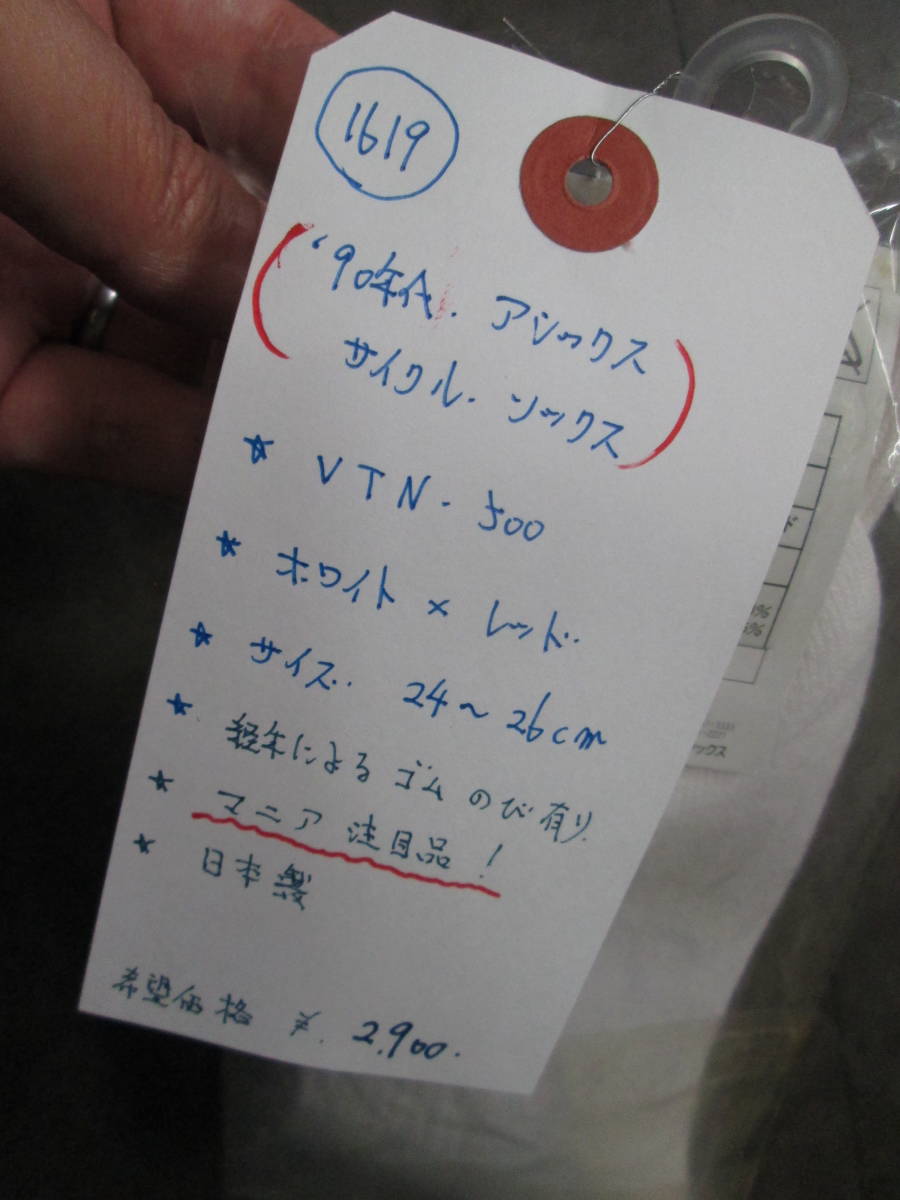 1619
'90年代. アシックス
サイクル. ソックス
★ VTN - 500
★ ホワイト × レッド.
★ サイズ. 24～26cm
★ 経年による ゴム のび 有り.
★ マニア 注目品 !
★ 日本製
希望価格 ¥. 2,900.
ド
%
%
ックス